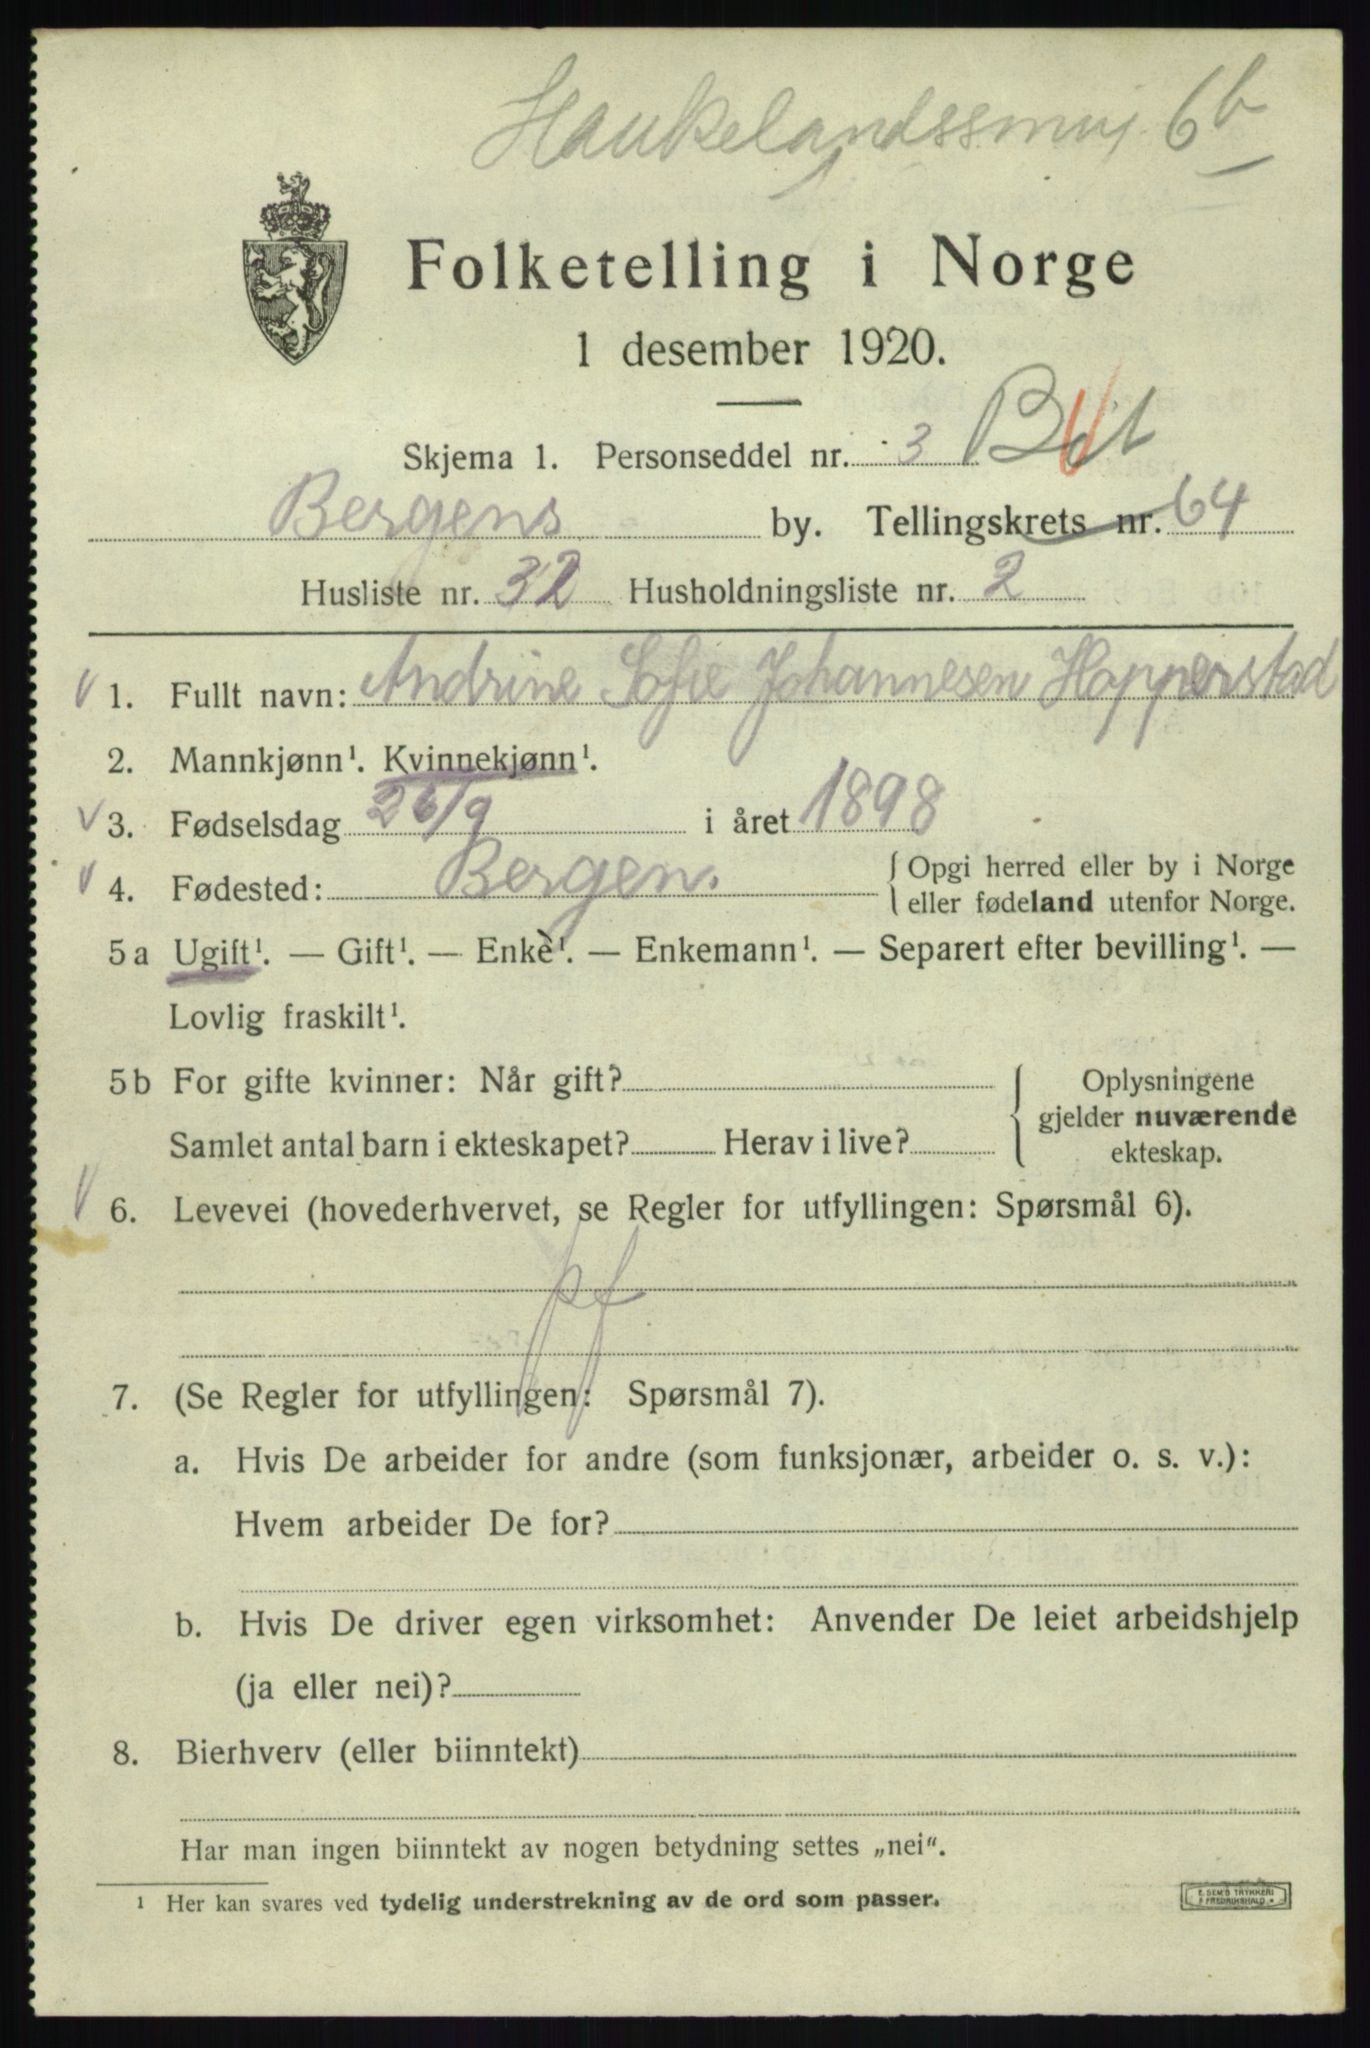 Haukelandssmug 6b
Folketelling i Norge
1 desember 1920.
Skjema 1. Personseddel nr. 3
Bergens by. Tellingskrets nr. 64
Husliste nr. 32 Husholdningsliste nr. 2
1. Fullt navn: Andrine Sofie Johannesen Hopperstad
2. Mannkjønn¹. Kvinnekjønn¹.
3. Fødselsdag 26/9 i året 1898
4. Fødested: Bergen. { Opgi herred eller by i Norge
eller fødeland utenfor Norge.
5a Ugift¹. — Gift¹. — Enke¹. — Enkemann¹. — Separert efter bevilling¹. —
Lovlig fraskilt¹.
5b For gifte kvinner: Når gift? { Oplysningene
gjelder nuværende
Samlet antal barn i ekteskapet? Herav i live?
ekteskap.
6. Levevei (hovederhvervet, se Regler for utfyllingen: Spørsmål 6).
pf
7. (Se Regler for utfyllingen: Spørsmål 7).
a. Hvis De arbeider for andre (som funksjonær, arbeider o. s. v.):
Hvem arbeider De for?
b. Hvis De driver egen virksomhet: Anvender De leiet arbeidshjelp
(ja eller nei)?
8. Bierhverv (eller biinntekt)
Har man ingen biinntekt av nogen betydning settes „nei“.
¹ Her kan svares ved tydelig understrekning av de ord som passer.
E. SEM'S TRYKKERI
FREDRIKSHALD